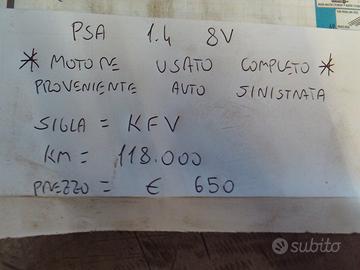 PSA 1.4 8V
* MOTORE USATO COMPLETO *
PROVENIENTE AUTO SINISTRATA
SIGLA = KFV
KM = 118.000
PREZZO = € 650
subito